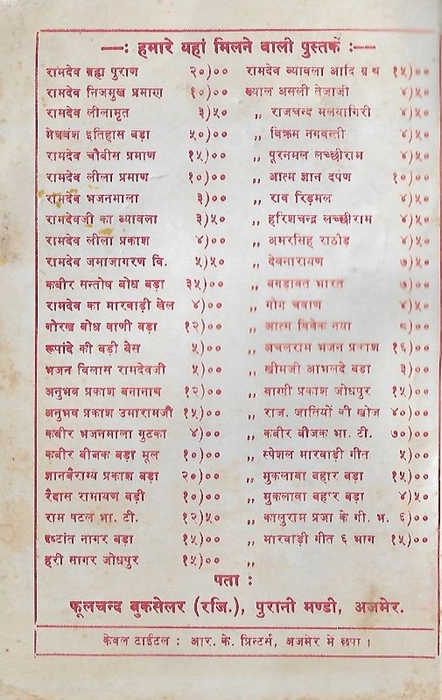 —: हमारे यहां मिलने वाली पुस्तकें :—
रामदेव ब्रह्म पुराण २०)००
रामदेव निजमुख प्रमाण १०)००
रामदेव लीलामृत ३)५०
मेघवंश इतिहास बड़ा ५०)००
रामदेव चौबीस प्रमाण १५)००
रामदेव लीला प्रमाण १०)००
रामदेव भजनमाला ३)००
रामदेवजी का ब्यावला ३)५०
रामदेव लीला प्रकाश ४)००
रामदेव जमाजागरण वि. ५)५०
कबीर सन्तोष बोध बड़ा ३५)००
रामदेव का मारवाड़ी खेल ४)००
गोरख बोध वाणी बड़ा १२)००
रूपांदे की बड़ी बेल ५)००
भजन विलास रामदेवजी ५)००
अनुभव प्रकाश बनानाथ १२)००
अनुभव प्रकाश उमारामजी १५)००
कबीर भजनमाला गुटका ४)००
कबीर बीजक बड़ा मूल १०)००
ज्ञानबैराग्य प्रकाश बड़ा २०)००
रैदास रामायण बड़ी १०)००
राम पटल भा. टी. १२)५०
दृष्टांत नागर बड़ा १५)००
हरी सागर जोधपुर १५)००
रामदेव ब्यावला आदि ग्रंथ १५)००
ख्याल असली तेजाजी ४)५०
,, राजचन्द मलयागीरी ४)५०
,, विक्रम नागवन्ती ४)५०
,, पूरनमल लच्छीराम ४)५०
,, आत्म ज्ञान दर्पण १०)००
,, राव रिड़मल ४)५०
,, हरिशचन्द्र लच्छीराम ४)५०
,, अमरसिह राठौड़ ४)५०
,, देवनारायण ७)५०
,, बगड़ावत भारत ७)००
,, गोग चवाण ४)५०
,, आत्म विवेक नया
,, अचलराम भजन प्रकाश १६)००
,, खीमजी आभलदे बड़ा ३)००
,, वाणी प्रकाश जोधपुर १५)००
,, राज. जातियों की खोज ४०)००
,, कबीर बीजक भा. टी. ७०)००
,, स्पेशल मारवाड़ी गीत ५)००
,, मुकलावा बहार बड़ा १५)००
,, मुकलावा बहार बड़ा ४)५०
,, कालुराम प्रजा के गी. भ. ६)००
,, मारवाड़ी गीत ६ भाग १५)००
,,
पता :
फूलचन्द बुकसेलर (रजि.), पुरानी मण्डी, अजमेर.
केवल टाईटल : आर. के. प्रिन्टर्स, अजमेर मे छपा ।